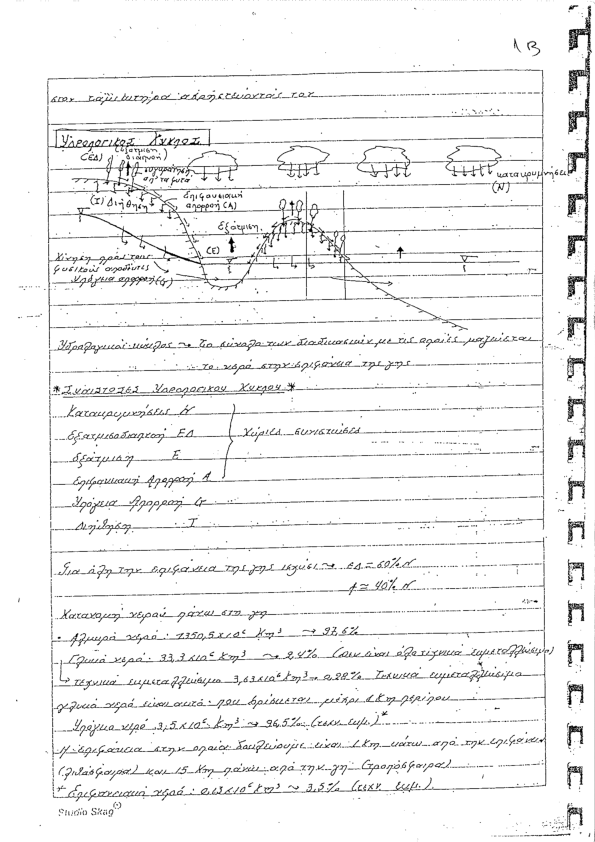 1B
στον ταμιευτήρα αχρηστεύοντάς τον
ΥΔΡΟΛΟΓΙΚΟΣ ΚΥΚΛΟΣ
(εξάτμιση
(ΕΔ) διαπνοή)
συγκράτηση
απ' τα φυτά
κατακρημνήσεις
(Ν)
(Ι) Διήθηση
επιφανειακή
απορροή (Α)
εξάτμιση
(Ε)
Κίνηση προς τους
φυσικούς αποδέκτες
Υπόγεια απορροή (G)
Υδρολογικός κύκλος → Το σύνολο των διαδικασιών με τις οποίες μαζεύεται
το νερό στην επιφάνεια της γης
* ΣΥΝΙΣΤΩΣΕΣ ΥΔΡΟΛΟΓΙΚΟΥ ΚΥΚΛΟΥ *
Κατακρημνήσεις Ν
Εξατμισοδιαπνοή ΕΔ
Κύριες συνιστώσες
Εξάτμιση Ε
Επιφανειακή Απορροή Α
Υπόγεια Απορροή G
Διήθηση Ι
Για όλη την επιφάνεια της γης ισχύει → ΕΔ = 60% Ν
Α = 40% Ν
Κατανομή νερού πάνω στη γη
• Αλμυρό νερό: 1350,5 x 10⁶ Km³ → 97,6%
Γλυκό νερό: 33,3 x 10⁶ Km³ → 2,4% (Δεν είναι όλο τεχνικά εκμεταλλεύσιμο)
→ τεχνικά εκμεταλλεύσιμο 3,63 x 10⁶ Km³ → 0,28% Τεχνικά εκμεταλλεύσιμο
γλυκό νερό είναι αυτό που βρίσκεται μέχρι 1 Km περίπου
Υπόγειο νερό 3,5 x 10⁶ Km³ → 96,5% (τεχν. εκμ.) *
Η επιφάνεια στην οποία δουλεύουμε είναι 1 Km κάτω από την επιφάνεια
(λιθόσφαιρα) και 15 Km πάνω από την γη (τροπόσφαιρα)
* Επιφανειακό νερό: 0,13 x 10⁶ Km³ → 3,5% (τεχν. εκμ.).
Studio Skag